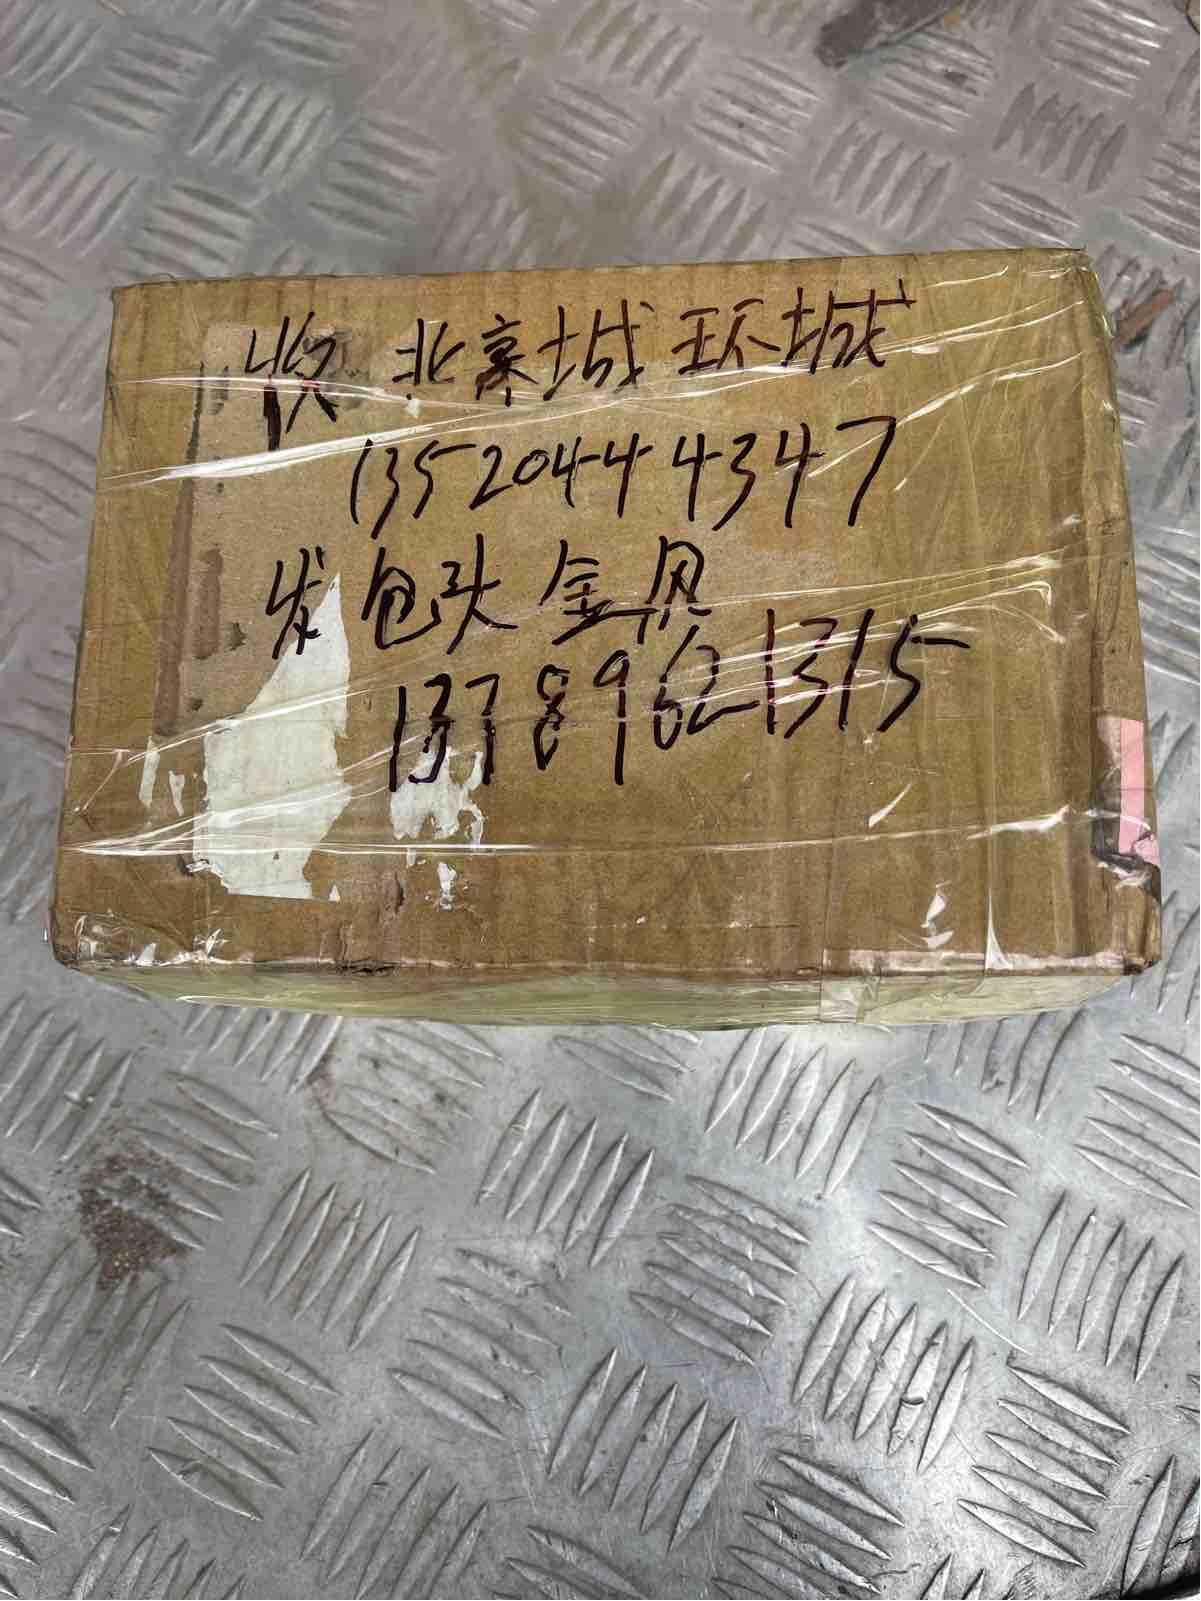 收 北京城环城
13520444347
发 包头金贝
13789621315